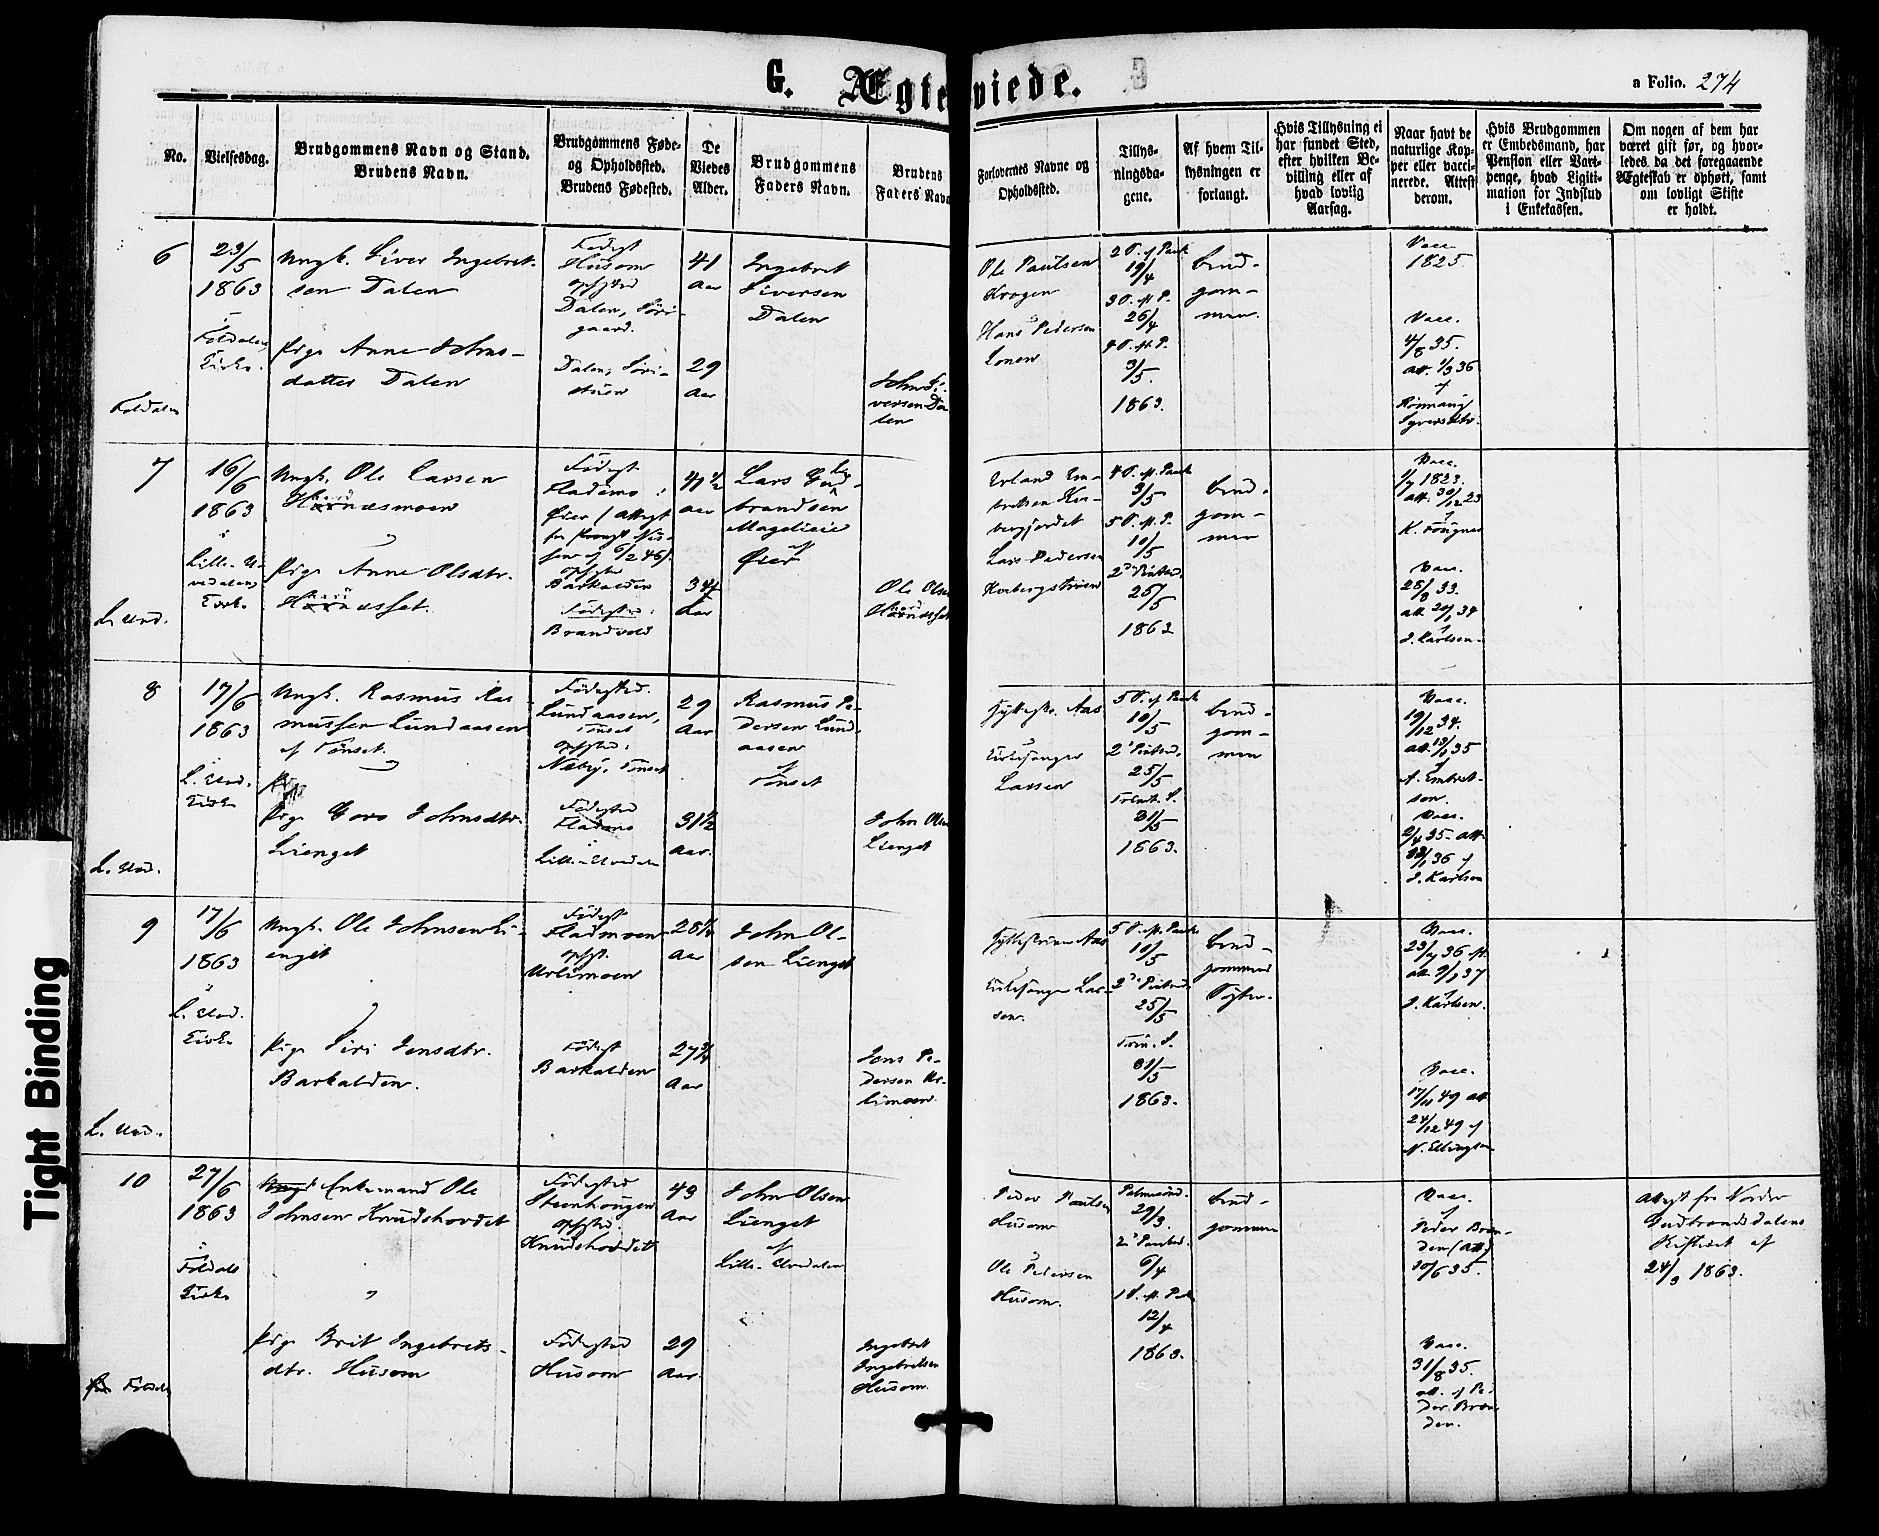 G. Ægteviede.
a Folio. 274
No.
Vielsesdag.
Brudgommens Navn og Stand.
Brudens Navn.
Brudgommens Føde-
og Opholdssted.
Brudens Fødested.
De
Viedes
Alder.
Brudgommens
Faders Navn.
Brudens
Faders Navn
Forlovernes Navne og
Opholdssted.
Tillys-
ningsda-
gene.
Af hvem Til-
lysningen er
forlangt.
Hvis Tillysning ei
har fundet Sted,
efter hvilken Be-
villing eller af
hvad lovlig
Aarsag.
Naar havt de
naturlige Kop-
per eller vacci-
nerede. Attest
derom.
Hvis Brudgommen
er Embedsmand, har
Pension eller Vart-
penge, hvad Ligiti-
mation for Indskud
i Enkekassen.
Om nogen af dem har
været gift før, og hvor-
ledes da det foregaaende
Ægteskab er ophørt, samt
om lovligt Skifte
er holdt.
6
23/5
1863
i
Foldalens
Kirke.
Foldalen
Ungk. Siver Ingebret-
sen Dalen
Pige Anne Johns-
datter Dalen
Fødest
Husom
Opholdssted
Dalen, Søri-
gaard.
Dalen, Søri-
stuen
41
Aar
29
Aar
Ingebret
Siversen
Dalen
John Si-
versen Da-
len
Ole Paulsen
Krogen
Hans Pedersen
Lonen
2 S. e. Paask
19/4
3 S. e. P.
26/4
4 S. e. P.
3/5.
1863.
brud-
gom-
men.
Vacc.
1825.
Vacc.
4/8 35.
att. 1/3 36
af
Rønnaug
Syversdtr.
7
16/6
1863
i
Lille-El-
vedalens
Kirke
L. Elvd.
Ungk. Ole Larsen
Haardnæsmoen
Pige Anne Olsdtr.
Haardnæsset.
Fødest
Flademo i
Øier (Attest
Opholdssted
Barkalden
Fødested:
Brandvold
41 1/2
aar
34
Aar
Lars Gud-
brandsen
Magelieie
af
Øier
Ole Olsen
Erland Em-
bretsen Kor-
bergjordet
Lars Pedersen
Korbergstuen
4 S. e. Paask
3/5
5 S. e. P.
10/5
2den Pintsed.
25/5
1863
brud-
gom-
men
Vacc.
1/7 1823.
att. 30/12 23
K. Fougner
Vacc.
28/8 33.
att. 20/1 34
J. Karlsen.
8
17/6
1863
i
L. Elvd.
Kirke
L. Elvd.
Ungk. Rasmus Ras-
mussen Lundaasen
af Tønset.
Pige Goro Johnsdtr.
Lienget
Fødested.
Lundaasen,
Tønset
Opholdssted:
Næby, Tønset
Fødested
Flademo
Lille-Elvdalen
29
Aar
31 1/2
Aar.
Rasmus Pe-
dersen Lund-
aasen
af
Tønset
John Olsen
Lienget
Gjelbstr. Aas
Kirkesanger
Larsen
5 S. e. Paask
10/5
2den Pintsed.
25/5
Trinit. S.
31/5
1863.
brud-
gom-
men
Vacc.
19/12 34.
att. 13/1 35
A. Embret-
sen.
Vacc.
2/4 35. att.
1/1 36 af
J. Karlsen
9
17/6
1863
i
L. Elvd.
Kirke
L. Elvd.
Ungk. Ole Johnsen Li-
enget
Pige Siri Jensdtr.
Barkalden.
Fødest
Fladmoen
opholdst.
Urlimoen
Fødest
Barkalden
28 1/4
Aar
27 3/4
Aar
John Ol-
sen Lienget
Jens Pe-
dersen Ur-
limoen.
Kirkesanger Lar-
sen.
5 S. e. Paask
10/5
2den Pintsed.
25/5
Trin. S.
31/5
1863.
brud-
gommens
Søster.
Vacc.
23/7 36
att. 3/1 37
J. Karlsen.
Vacc.
17/11 49 att
24/12 49 af
N. Ellingsen
10
27/6
1863
i
Foldals
Kirke
Foldalen
Ungk Enkemand Ole
Johnsen Knudshovdet
Pige Brit Ingebrets-
dtr. Husom
Fødested
Steenhougen
opholdssted.
Knudshovdet
Fødested
Husom
43
Aar
29
Aar.
John Olsen
Lienget
af
Lille-Elvdalen
Ingebret
Ingebretsen
Husom.
Peder Paulsen
Husom
Ole Pedersen
Husom.
Palmesønd.
29/3.
2den Paasked.
6/4
1 S. e. P.
12/4
1863.
brud-
gommen
Vacc.
af
Peder Bræn-
den (att.)
30/6 35.
Vacc.
31/8 35.
att. af Pe-
der Bræn-
den.
Attest fra Nordre
Gudbrandsdalens
Skifteret af
24/3 1863.
Tight Binding